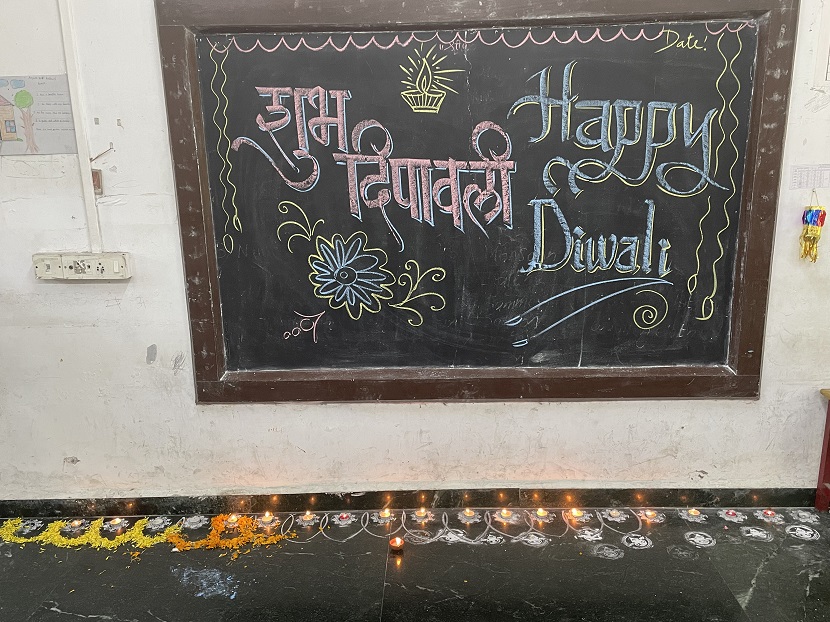 Date:
शुभ
दिपावली
Happy
Diwali